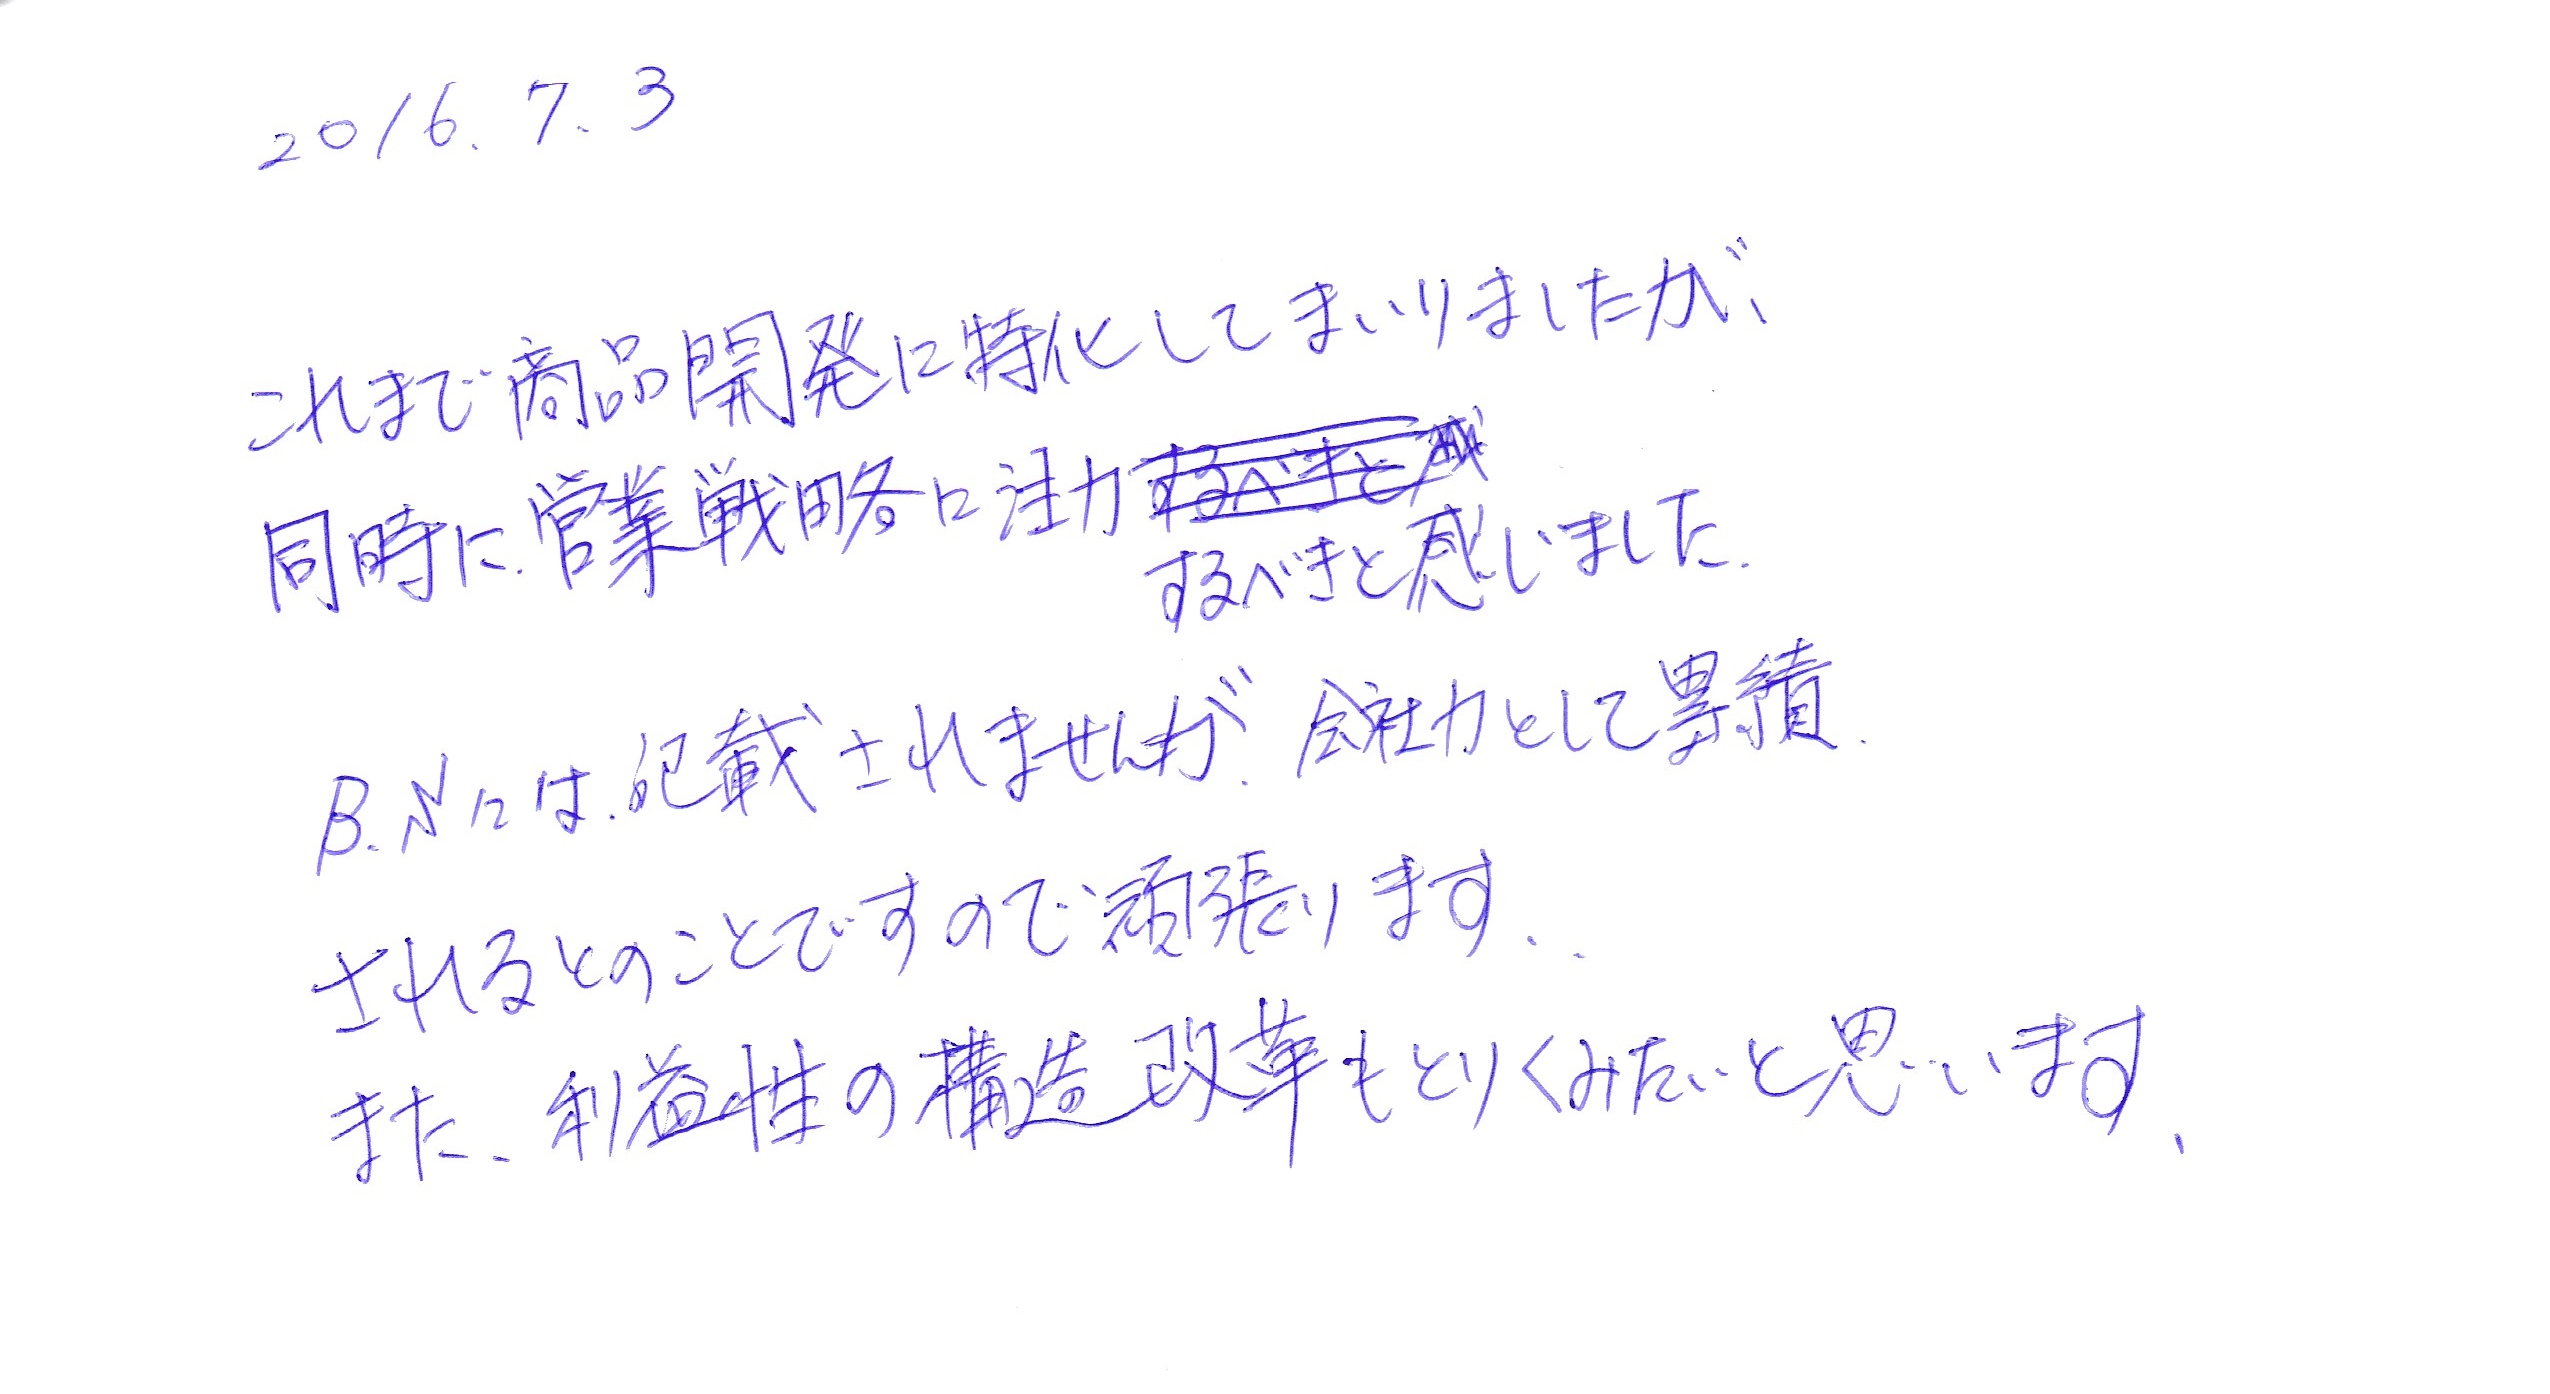 2016.7.3
これまで商品開発に特化してまいりましたが、
同時に営業戦略に注力
するべきと感じました.
には.記載されませんが.会社力として累積.
されるとのことですので頑張ります..
また、利益性の構造改革もとりくみたいと思います、